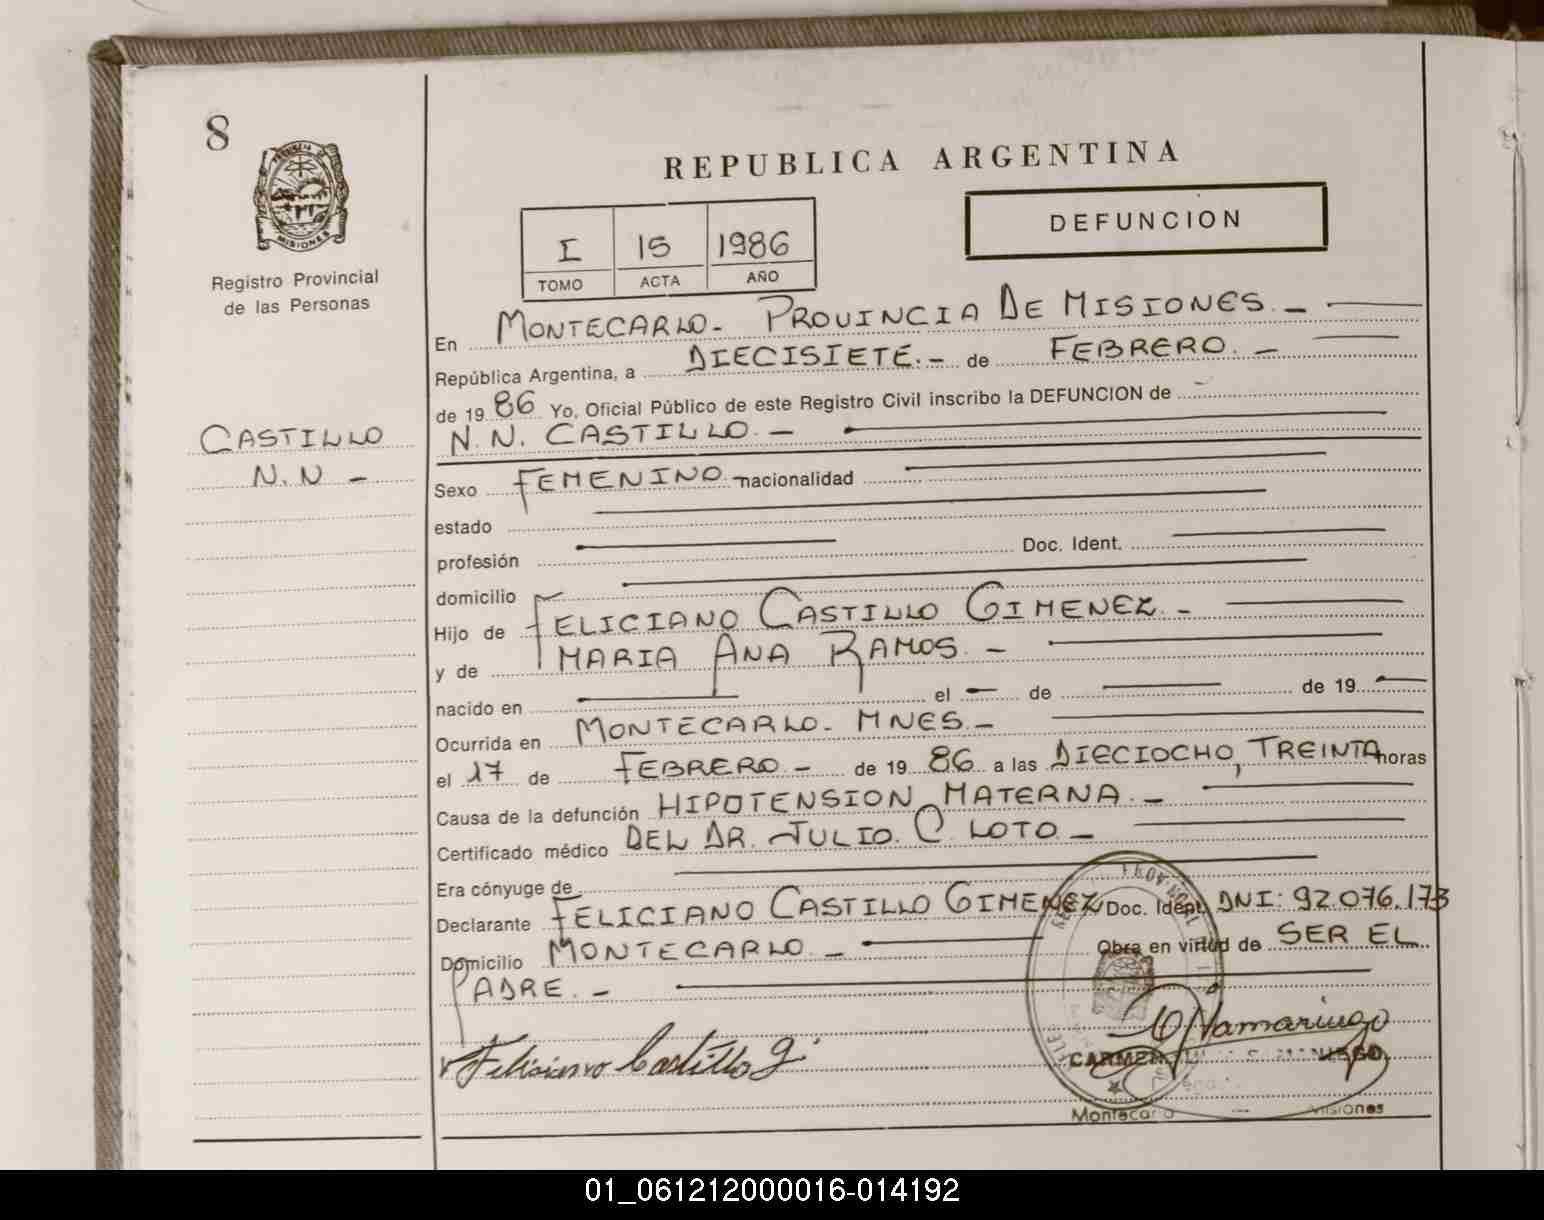 8
PROVINCIA DE
MISIONES
Registro Provincial
de las Personas
CASTILLO
N.N -
REPUBLICA ARGENTINA
DEFUNCION
I 15 1986
TOMO ACTA AÑO
En MONTECARLO - PROVINCIA DE MISIONES. -
República Argentina, a DIECISIETE. - de FEBRERO. -
de 19 86 Yo, Oficial Público de este Registro Civil inscribo la DEFUNCION de
N. N. CASTILLO. -
Sexo FEMENINO nacionalidad
estado
profesión Doc. Ident.
domicilio
Hijo de FELICIANO CASTILLO GIMENEZ. -
y de MARIA ANA RAMOS. -
nacido en el - de de 19
Ocurrida en MONTECARLO - MNES. -
el 17 de FEBRERO - de 19 86 a las DIECIOCHO, TREINTA horas
Causa de la defunción HIPOTENSION MATERNA. -
Certificado médico DEL DR. JULIO. C. LOTO -
Era cónyuge de
Declarante FELICIANO CASTILLO GIMENEZ Doc. Ident. DNI: 92.076.173
Domicilio MONTECARLO - Obra en virtud de SER EL
PADRE. -
Feliciano Castillo g.
CARMEN
Montecarlo - Misiones
01_061212000016-014192